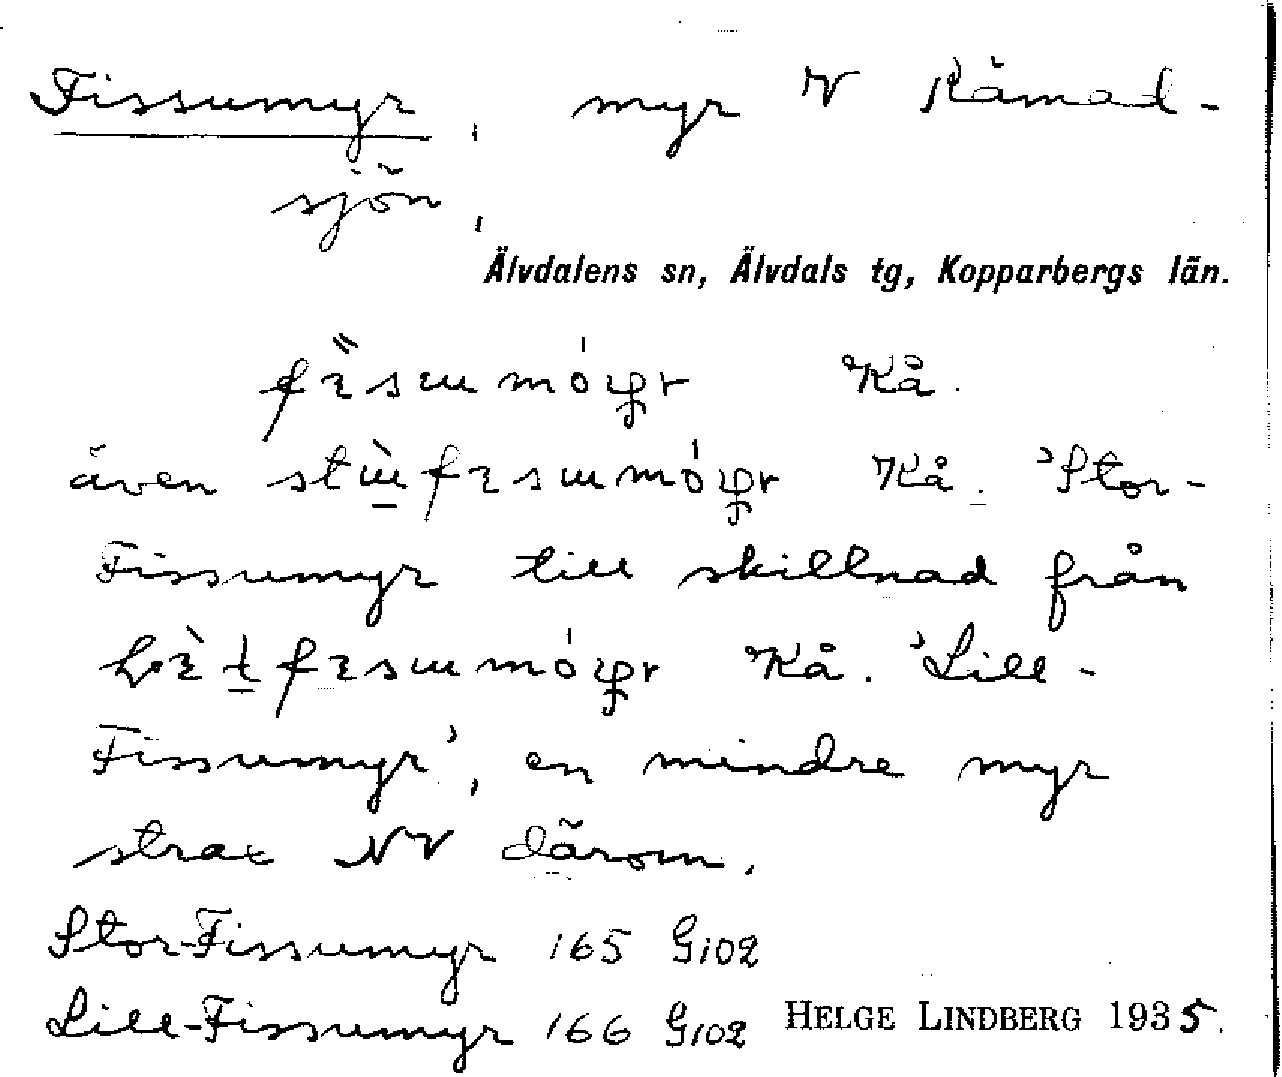 Fissumyr, myr V Råmad-
sjön,
Älvdalens sn, Älvdals tg, Kopparbergs län.
Kå.
även Kå. 'Stor-
Fissumyr till skillnad från
Kå. 'Lill-
Fissumyr', en mindre myr
strax NV därom.
Stor-Fissumyr 165 G102
Lill-Fissumyr 166 G102 HELGE LINDBERG 1935.